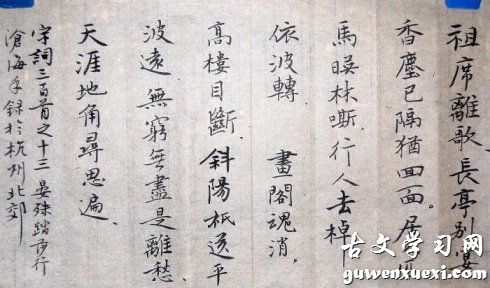 祖席離歌，長亭別宴。
香塵已隔猶回面。居
馬暎林嘶，行人去棹
依波轉 畫閣魂消，
高樓目斷 斜陽祇送平
波遠、無窮無盡是離愁、
天涯地角尋思遍、
宋詞三百首之十三 晏殊踏莎行
滄海手錄於杭州北郊
古文学习网
guwenxuexi.com